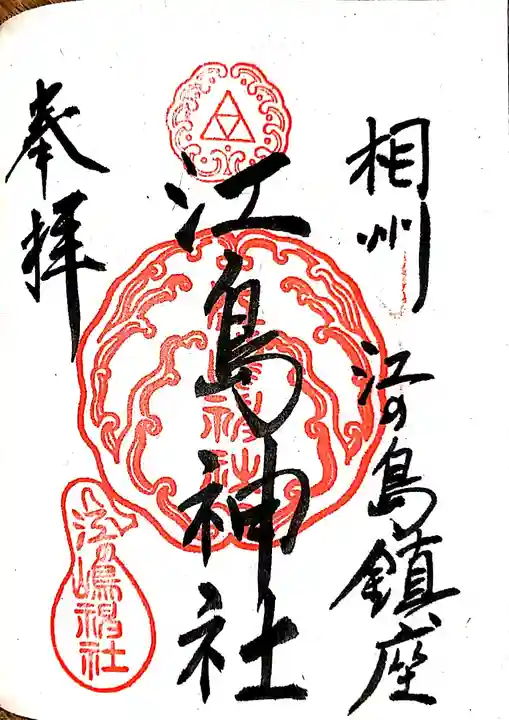 相州
江の島鎮座
江島神社
奉拝
江嶋神社